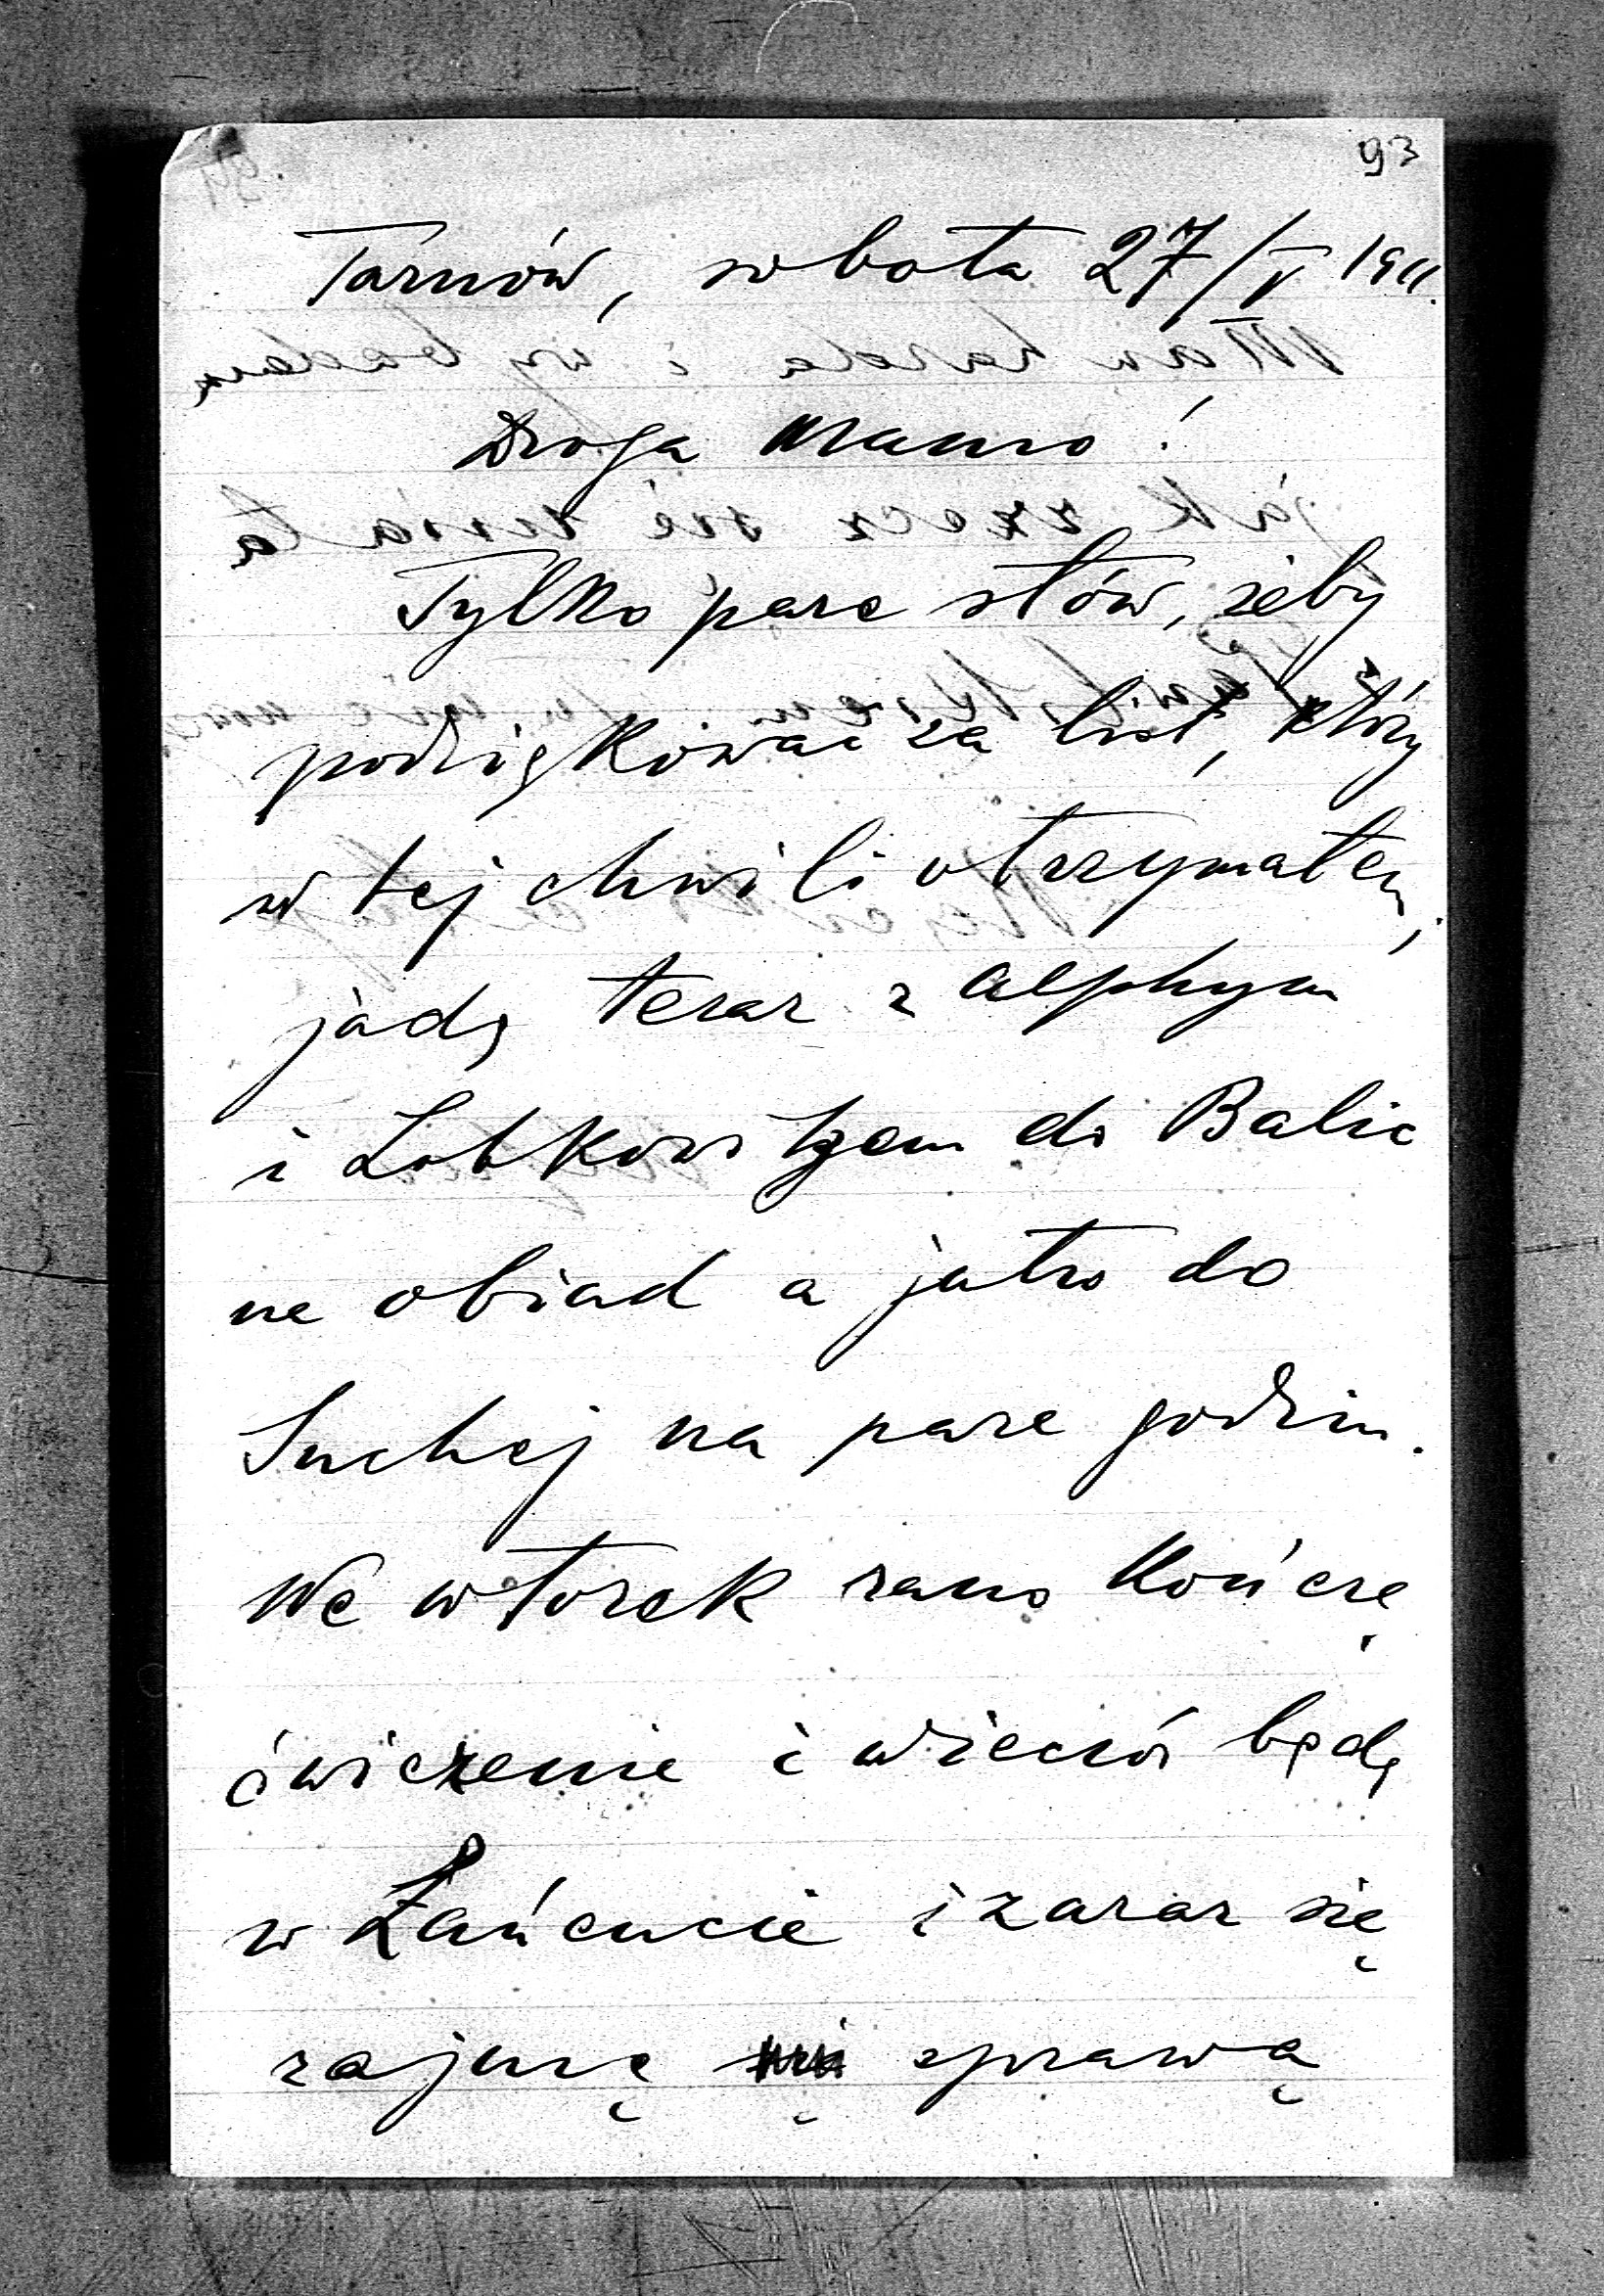 93
Tarnów, sobota 27/V 1911.
Droga Mamo!
Tylko pare słów, żeby
podziękować za list, który
w tej chwili otrzymałem,
jadę teraz z Alphym
i Lobkowitzem do Balic
na obiad a jutro do
Suchej na pare godzin.
We wtorek rano kończę
ćwiczenie i wieczór będę
w Łańcucie i zaraz się
zajmę sprawą